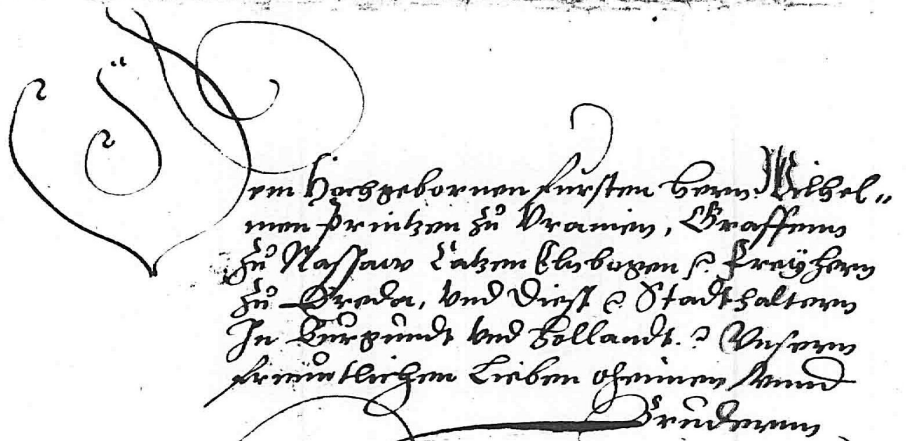 Dem Hochgebornen fursten hern Wilhel„
men Printzen zů Vranien, Graffenn
zů Nassaw Catzen Elnbogen ꝛc Freÿhern
zů Breda, vnd Diest ꝛc Stadthaltern
In Burgundt vnd Hollandt. ꝛc Vnserm
freuntlichen Lieben oheimen vnnd
Bruderenn